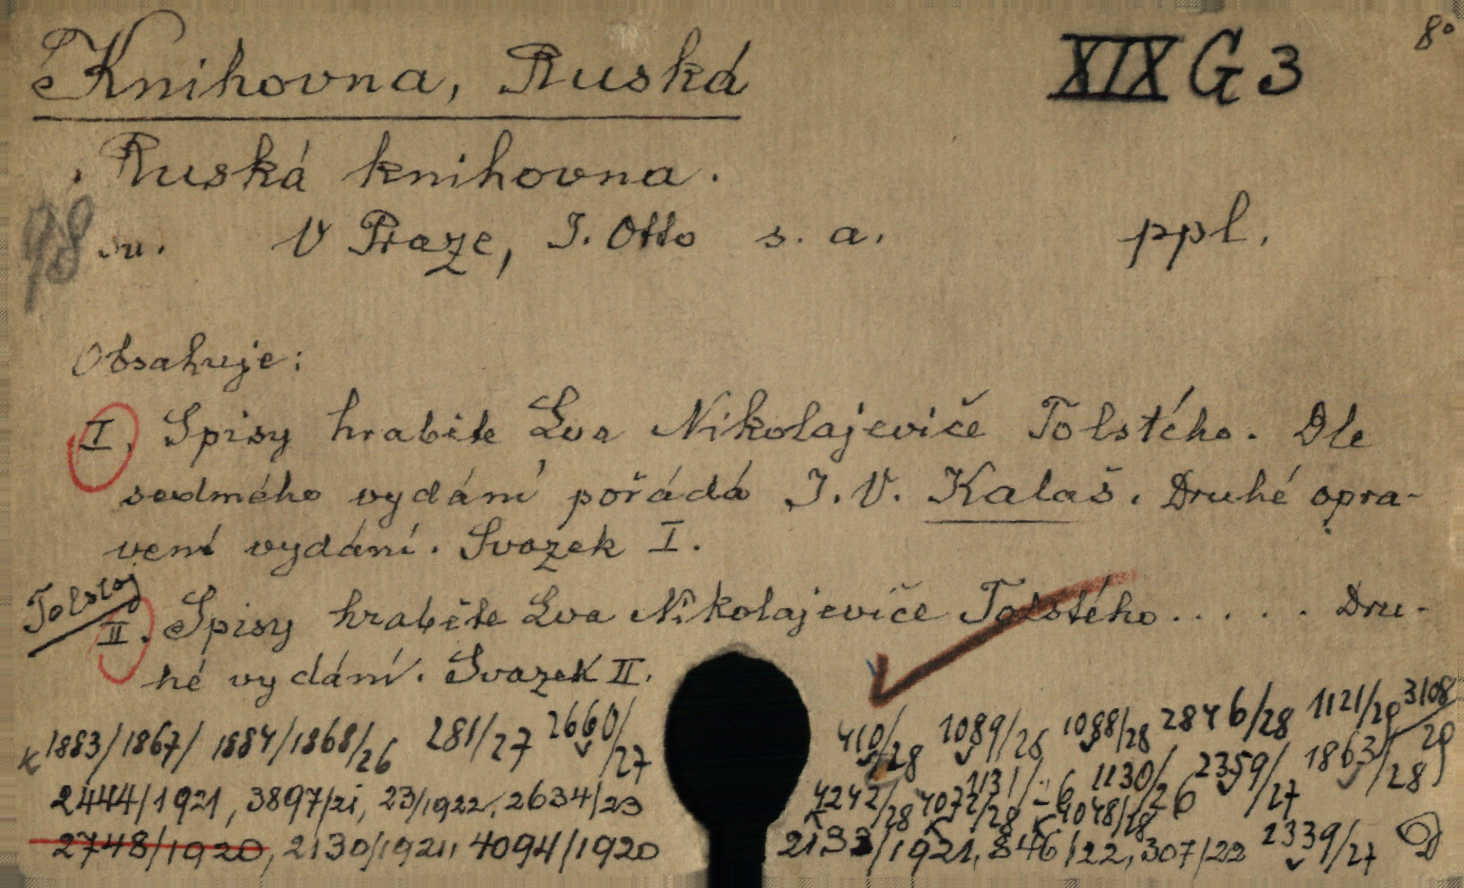 8°
Knihovna, Ruská XIX G 3
Ruská knihovna.
98 sv. V Praze, J. Otto s. a. ppl.
Obsahuje:
I. Spisy hraběte Lva Nikolajeviče Tolstého. Dle
sedmého vydání pořádá J. V. Kalaš. Druhé opra-
vené vydání. Svazek I.
Tolstoj
II. Spisy hraběte Lva Nikolajeviče Tolstého..... Dru-
hé vydání. Svazek II.
1883/1867/ 1884/1868/26 281/27 2660/27 410/28 1089/28 1088/28 2846/28 1121/29 3108/29
2444/1921, 3897/21, 23/1922, 2634/23 4242/28 4072/28 1131/26 4048/28 1130/26 2359/27 1863/28
2748/1920, 2130/1921, 4094/1920 2133/1921, 846/22, 307/22 2339/27